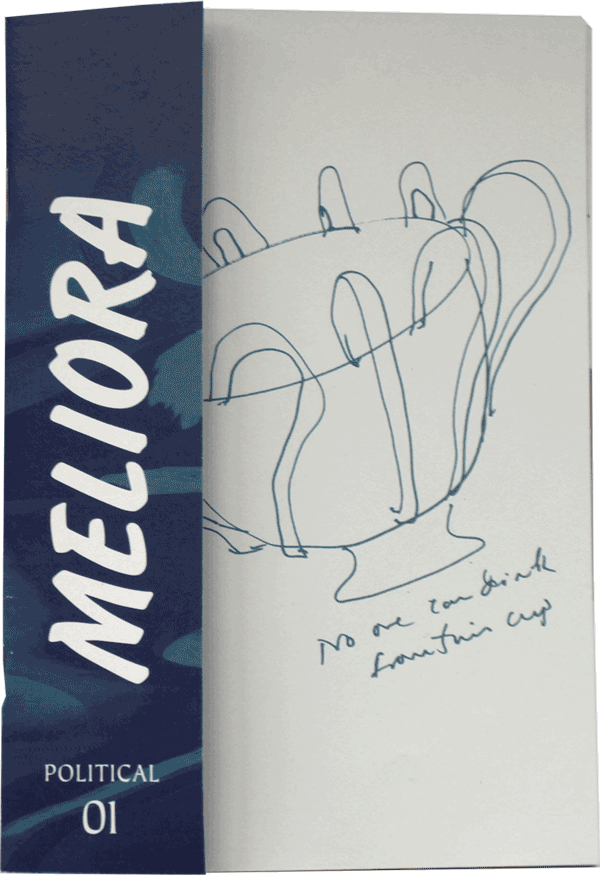 MELIORA
POLITICAL
01
No one can drink
from this cup